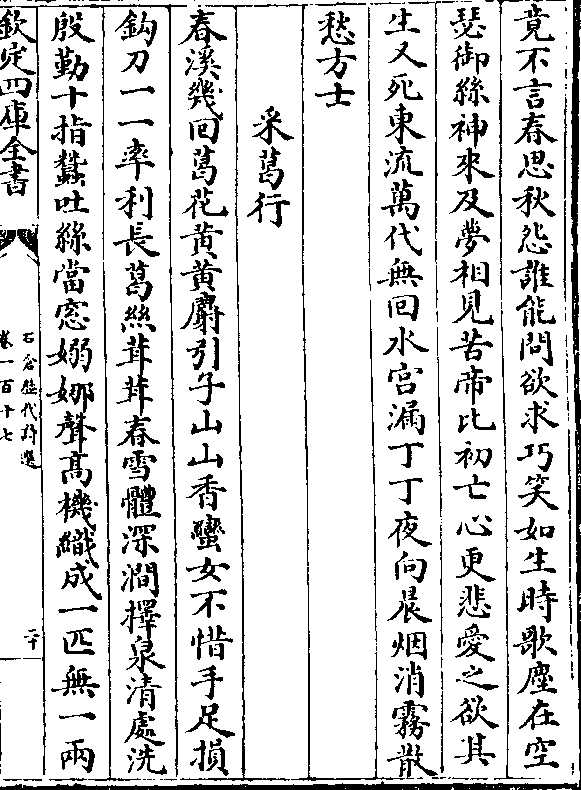 竟不言春思秋怨誰能問欲求巧笑如生時歌塵在空
瑟御絲神來及夢相見苦帝比初亡心更悲愛之欲其
生又死東流萬代無回水宫漏丁丁夜向晨烟消霧散
愁方士
采葛行
春溪幾回葛花黄黄麝引子山山香蠻女不惜手足損
鈎刀一一牽利長葛絲茸茸春雪體深澗擇泉清處洗
殷勤十指蠶吐絲當窓嫋娜聲髙機織成一匹無一兩
欽定四庫全書
石倉歴代詩選
卷一百十七
二十